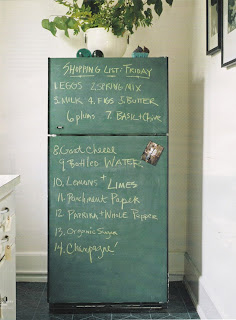 SHOPPING LIST: FRIDAY
1. EGGS 2. SPRING MIX
3. MILK 4. FIGS 5. BUTTER
6 plums 7. BASIL + Chive
8. Goat cheese
9. Bottled WATER
10. LEMONS + LIMES
11. Parchment Paper
12 PAPRIKA + WHOLE Pepper
13. ORGANIC Sugar
14. Champagne!